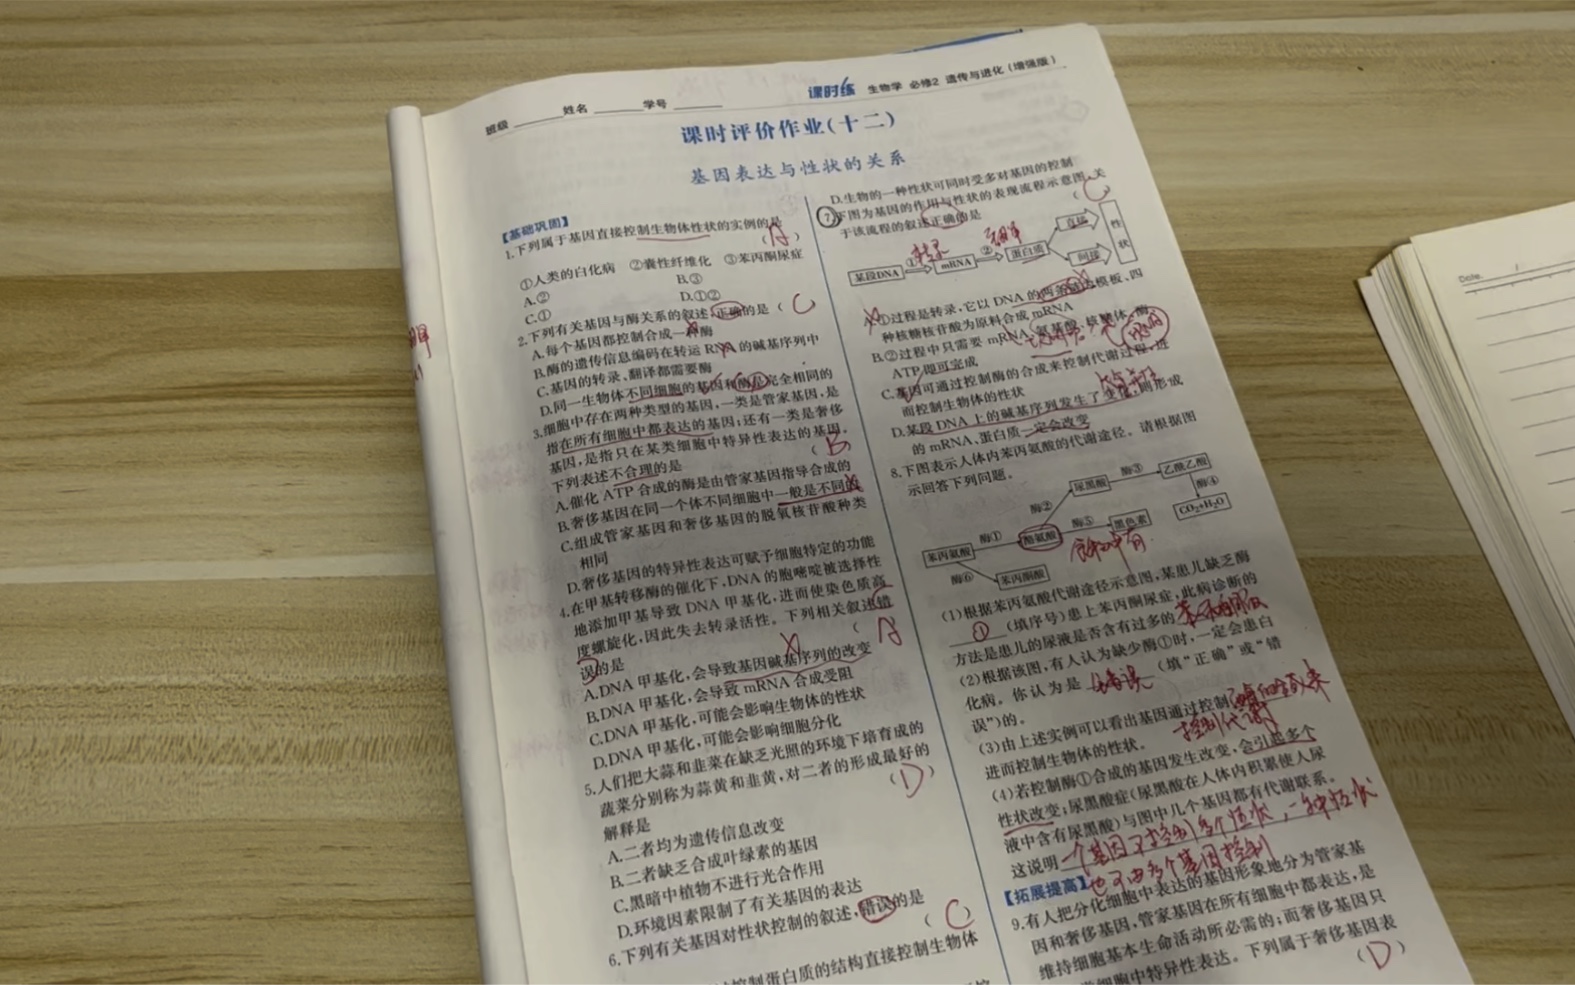 班级 姓名 学号
课时练 生物学 必修2 遗传与进化(增强版)
课时评价作业(十二)
基因表达与性状的关系
【基础巩固】
1.下列属于基因直接控制生物体性状的实例的是
(A)
①人类的白化病 ②囊性纤维化 ③苯丙酮尿症
A.② B.③
C.① D.①②
2.下列有关基因与酶关系的叙述,正确的是(C)
A.每个基因都控制合成一种酶
B.酶的遗传信息编码在转运RNA的碱基序列中
C.基因的转录、翻译都需要酶
D.同一生物体不同细胞的基因和酶是完全相同的
3.细胞中存在两种类型的基因,一类是管家基因,是
指在所有细胞中都表达的基因;还有一类是奢侈
基因,是指只在某类细胞中特异性表达的基因。
下列表述不合理的是 (B)
A.催化ATP合成的酶是由管家基因指导合成的
B.奢侈基因在同一个体不同细胞中一般是不同的
C.组成管家基因和奢侈基因的脱氧核苷酸种类
相同
D.奢侈基因的特异性表达可赋予细胞特定的功能
4.在甲基转移酶的催化下,DNA的胞嘧啶被选择性
地添加甲基导致DNA甲基化,进而使染色质高
度螺旋化,因此失去转录活性。下列相关叙述错
误的是 (A
A.DNA甲基化,会导致基因碱基序列的改变
B.DNA甲基化,会导致mRNA合成受阻
C.DNA甲基化,可能会影响生物体的性状
D.DNA甲基化,可能会影响细胞分化
5.人们把大蒜和韭菜在缺乏光照的环境下培育成的
蔬菜分别称为蒜黄和韭黄,对二者的形成最好的
解释是 (D)
A.二者均为遗传信息改变
B.二者缺乏合成叶绿素的基因
C.黑暗中植物不进行光合作用
D.环境因素限制了有关基因的表达
6.下列有关基因对性状控制的叙述,错误的是
(C)
控制蛋白质的结构直接控制生物体
D.生物的一种性状可同时受多对基因的控制
7.下图为基因的作用与性状的表现流程示意图,关
于该流程的叙述正确的是 (C)
某段DNA ① 转录 mRNA ② 翻译 蛋白质 直接 间接 性状
A.①过程是转录,它以DNA的两条链为模板、四
种核糖核苷酸为原料合成mRNA
B.②过程中只需要mRNA、氨基酸、核糖体、酶、
ATP即可完成
C.基因可通过控制酶的合成来控制代谢过程,进
而控制生物体的性状
D.某段DNA上的碱基序列发生了变化,则形成
的mRNA、蛋白质一定会改变
8.下图表示人体内苯丙氨酸的代谢途径。请根据图
示回答下列问题。
尿黑酸 酶③ 乙酰乙酸
酶② 酶④
酶① 酪氨酸 酶⑤ 黑色素 CO₂+H₂O
苯丙氨酸
酶⑥ 苯丙酮酸
(1)根据苯丙氨酸代谢途径示意图,某患儿缺乏酶
① (填序号)患上苯丙酮尿症,此病诊断的
方法是患儿的尿液是否含有过多的苯丙酮酸
(2)根据该图,有人认为缺少酶①时,一定会患白
化病。你认为是 错误 (填“正确”或“错
误”)的。
(3)由上述实例可以看出基因通过控制酶的合成来
控制代谢
进而控制生物体的性状。
(4)若控制酶①合成的基因发生改变,会引起多个
性状改变;尿黑酸症(尿黑酸在人体内积累使人尿
液中含有尿黑酸)与图中几个基因都有代谢联系。
这说明一个基因可控制多个性状,一种性状
也可由多个基因控制
【拓展提高】
9.有人把分化细胞中表达的基因形象地分为管家基
因和奢侈基因,管家基因在所有细胞中都表达,是
维持细胞基本生命活动所必需的;而奢侈基因只
细胞中特异性表达。下列属于奢侈基因表
(D)
Date.